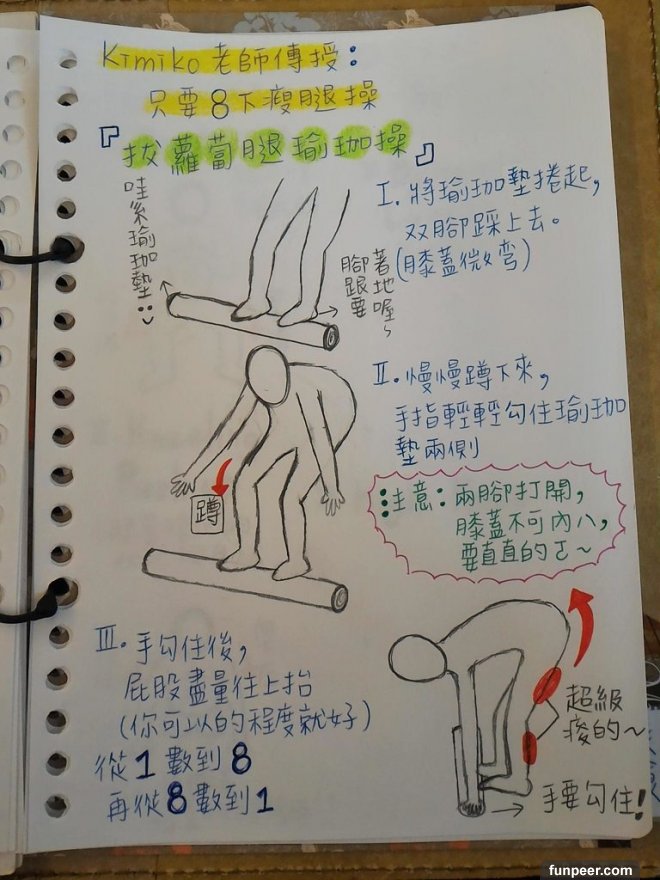 Kimiko 老師傳授：
只要8下瘦腿操
『拔蘿蔔腿瑜珈操』
哇系瑜珈墊
I. 將瑜珈墊捲起，
双腳踩上去。
(膝蓋微彎)
腳跟要
著地喔~
II. 慢慢蹲下來，
手指輕輕勾住瑜珈
墊兩側
蹲
注意：兩腳打開，
膝蓋不可內八，
要直直的ㄛ~
III. 手勾住後，
屁股盡量往上抬
(你可以的程度就好)
從1數到8
再從8數到1
超級
痠的~
手要勾住!
funpeer.com